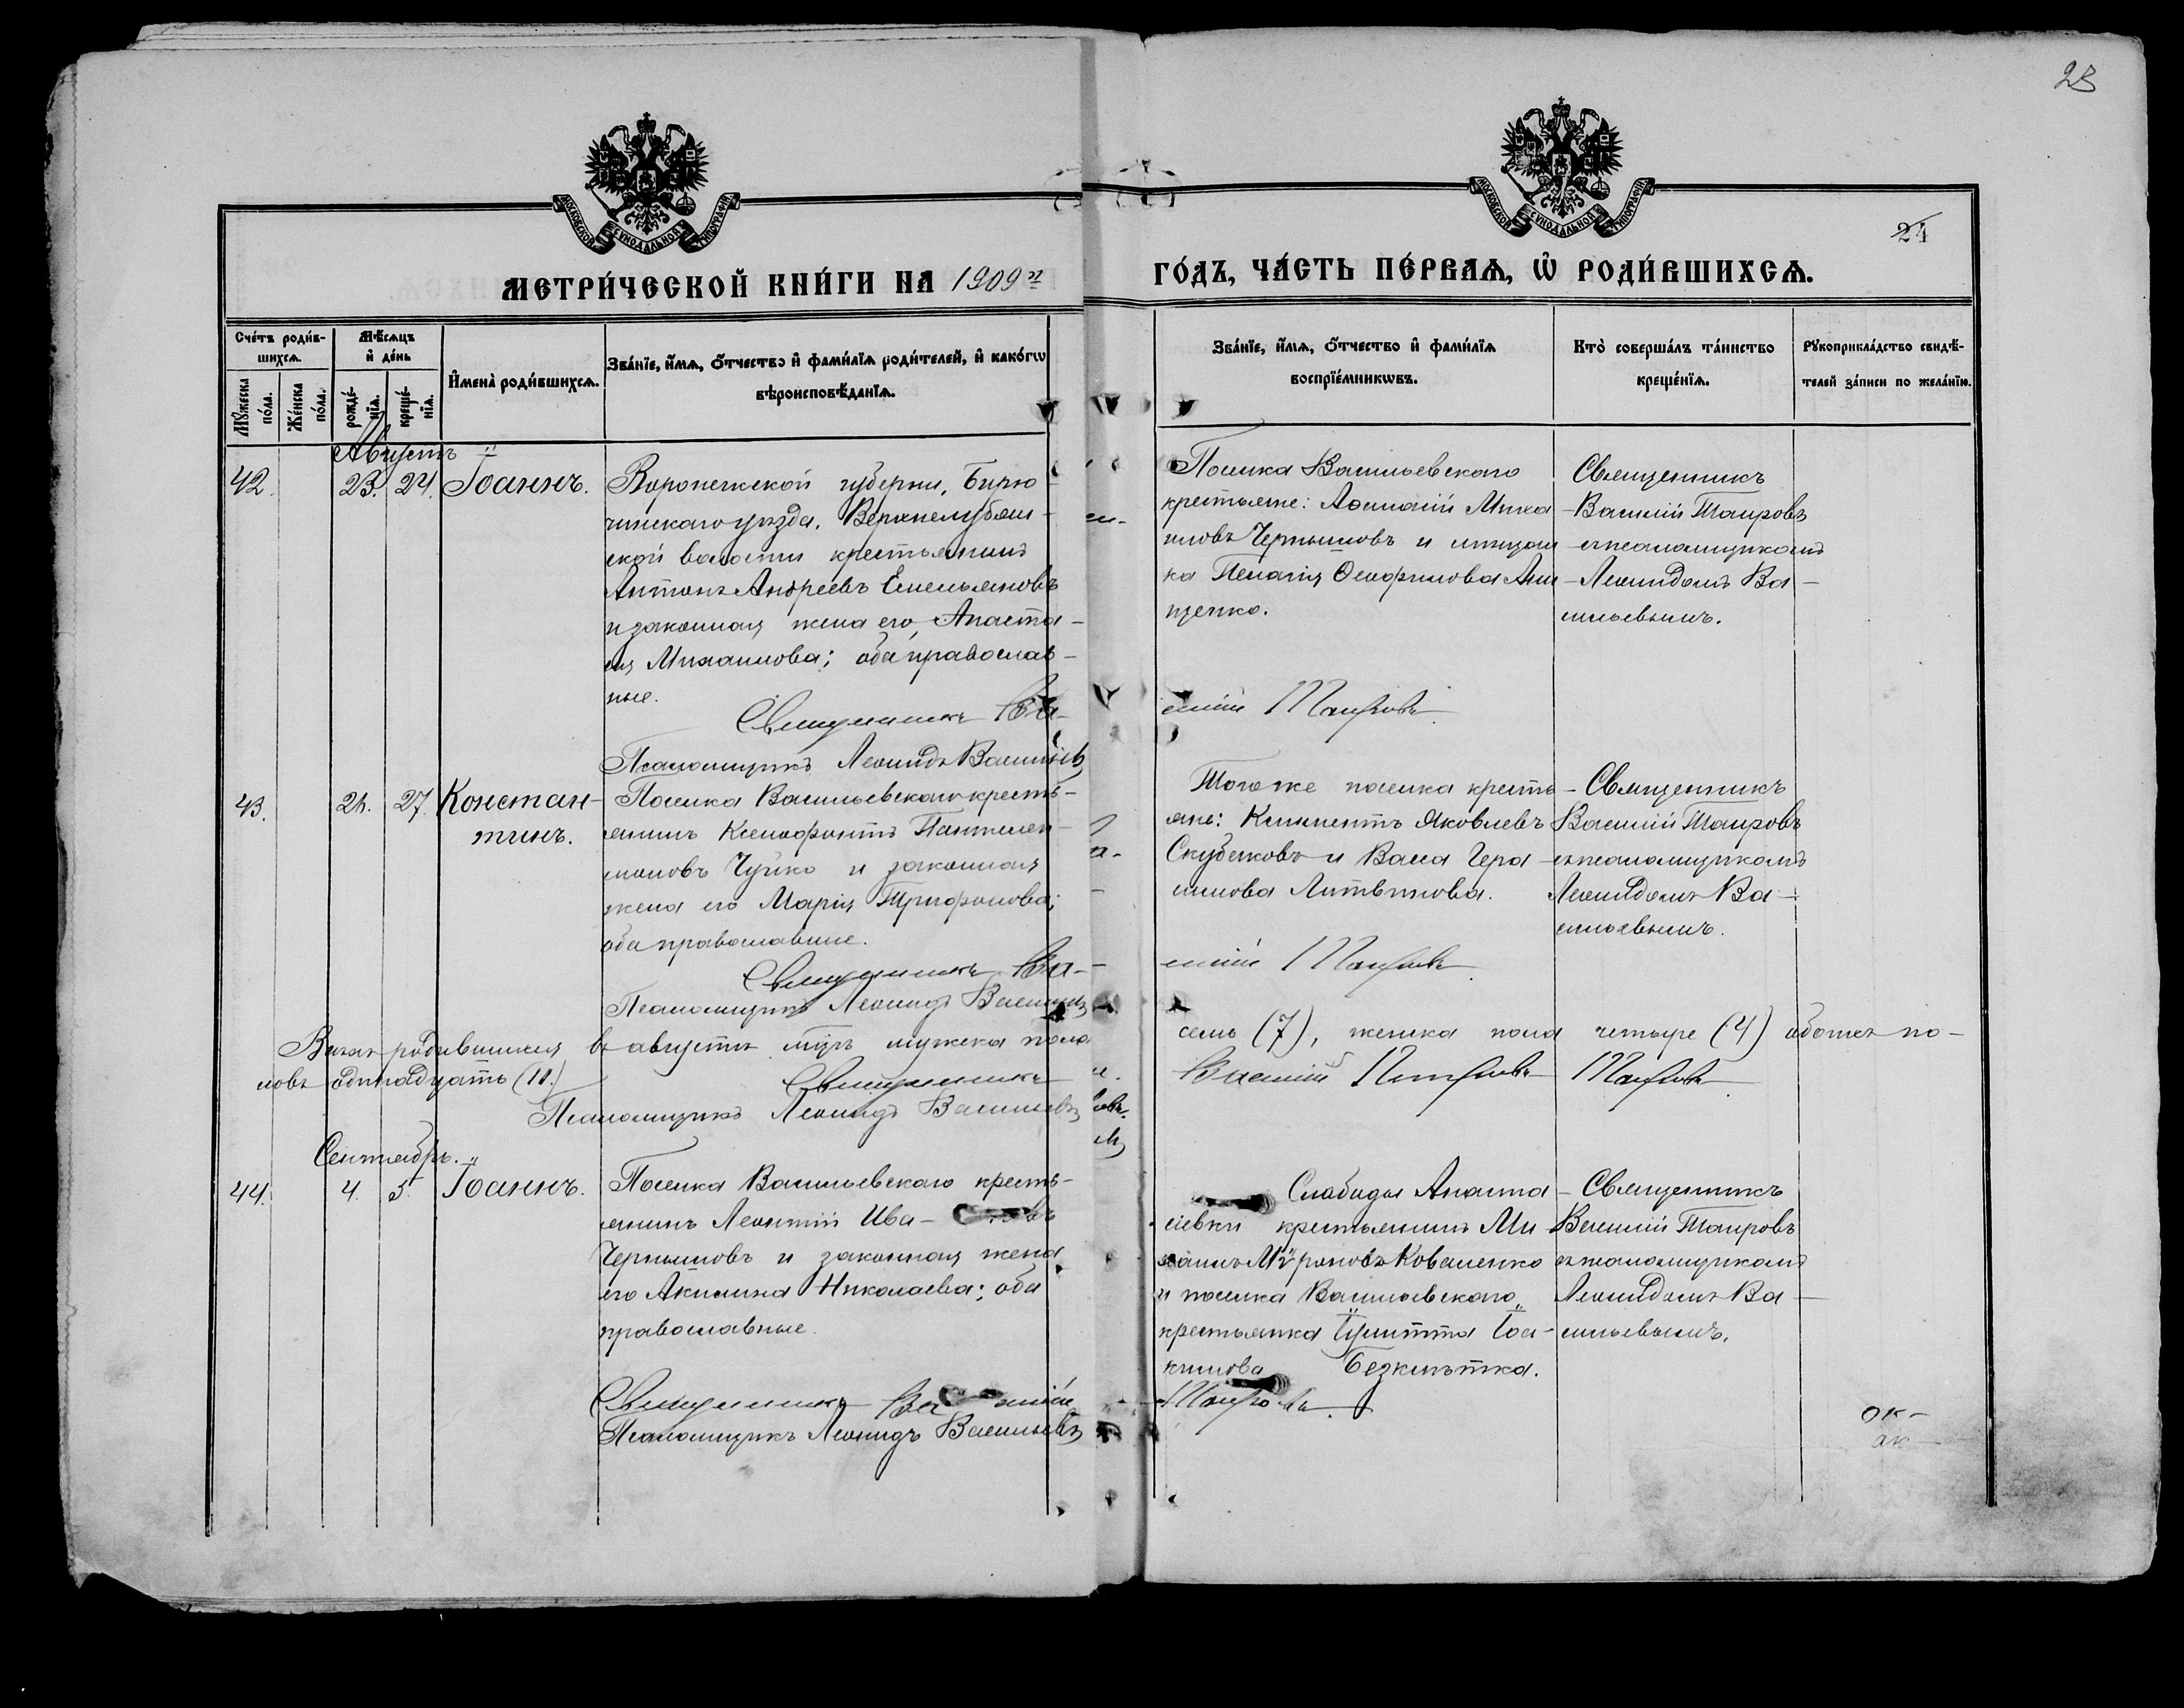 23
МОСКОВСКОЙ СѴНОДАЛЬНОЙ ТИПОГРАФІИ
МОСКОВСКОЙ СѴНОДАЛЬНОЙ ТИПОГРАФІИ
24
МЕТРИ́ЧЕСКОЙ КНИ́ГИ НА 1909й
ГО́ДЪ, ЧА́СТЬ ПЕ́РВАѦ, Ѡ҆ РОДИ́ВШИХСѦ.
Сче́тъ роди́в-
шихсѧ.
Мꙋ́жеска по́ла.
Же́нска по́ла.
Мѣ́сѧцъ
и҆ де́нь
рожде́-нїѧ.
креще́-нїѧ.
И҆мена̀ роди́вшихсѧ.
Зва́нїе, и҆́мѧ, ѻ҆́тчество и҆ фами́лїѧ роди́телей, и҆ како́гѡ
вѣроисповѣ́данїѧ.
Зва́нїе, и҆́мѧ, ѻ҆́тчество и҆ фами́лїѧ
воспрїе́мникѡвъ.
Кто̀ соверша́лъ та́инство
креще́нїѧ.
Рꙋкоприкла́дство свидѣ́-
телей за́писи по жела́нїю.
Августъ
42. 23. 24. Іоаннъ.
Воронежской губерни, Бирю
чинскаго уѣзда, Верхнелубян-
ской волости крестьянинъ
Антонъ Андреевъ Емельяновъ
и законная жена его Анаста-
сія Михаилова; оба православ-
ные.
Священникъ Ва-
Псаломщикъ Леонидъ Васильевъ
Поселка Васильевскаго
крестьяне: Аѳанасій Миха
иловъ Чернышовъ и
ка Пелагія Ѳеофилова Ли
щенко.
Священникъ
Василій Таировъ
съ псаломщикомъ
Леонидомъ Ва-
сильевымъ.
силій Таировъ
43. 21. 27. Констан-
тинъ.
Поселка Васильевскаго кресть-
янинъ Ксенофонтъ Пантелей-
моновъ Чуйко и законная
жена его Марія Трифонова;
оба православные.
Священникъ Ва-
Псаломщикъ Леонидъ Васильевъ
Того же поселка кресть-
яне: Климентъ Яковлевъ
Скубенковъ и Васса Гера
симова Литвинова.
Священникъ
Василій Таировъ
съ псаломщикомъ
Леонидомъ Ва-
сильевымъ.
силій Таировъ
Всѣхъ родившихся въ августѣ м-цѣ мужеска пола семь (7), женска пола четыре (4) обоихъ по-
ловъ одиннадцать (11.)
Священникъ Василій Таировъ Таировъ
Псаломщикъ Леонидъ Васильевъ
Сентябрь.
44. 4. 5. Іоаннъ.
Поселка Васильевскаго кресть-
янинъ Леонтій Ива- новъ
Чернышовъ и законная жена
его Акилина Николаева; оба
православные.
Священникъ Василій
Псаломщикъ Леонидъ Васильевъ
Слободы Анаста-
сіевки крестьянинъ Ми
хаилъ Мѵроновъ Коваленко
и поселка Васильевскаго
крестьянка Іулитта Іоа-
кимова Безклѣтка.
Таировъ.
Священникъ
Василій Таировъ
съ псаломщикомъ
Леонидомъ Ва-
сильевымъ.
ок-